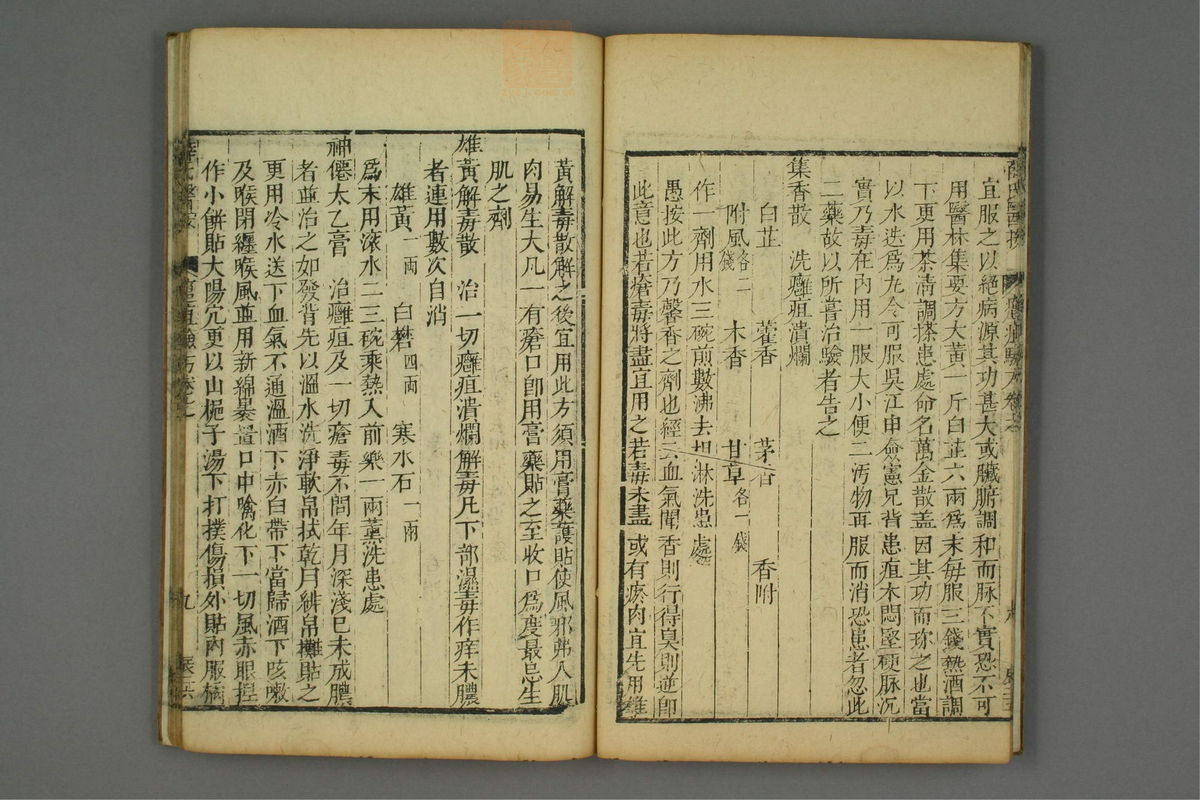 宜服之以絕病源其功甚大或臟腑調和而脉不實恐不可
用醫林集要方大黃一斤白芷六兩爲末每服三錢熱酒調
下更用茶清調搽患處命名萬金散盖因其功而珎之也當
以水迭爲丸令可服吳江申僉憲兄背患疽木悶堅硬脉沉
實乃毒在內用一服大小便二汚物再服而消恐患者忽此
二藥故以所嘗治驗者告之
集香散 洗癰疽潰爛
白芷 藿香 茅香 香附
防風各二錢 木香 甘草各一錢
作一劑用水三碗煎數沸去柤淋洗患處
愚按此方乃馨香之劑也經云血氣聞香則行得臭則逆卽
此意也若瘡毒將盡宜用之若毒未盡或有瘀肉宜先用雄
黃解毒散解之後宜用此方須用膏藥護貼使風邪弗入肌
肉易生大凡一有瘡口卽用膏藥貼之至收口爲度最忌生
肌之劑
雄黃解毒散 治一切癰疽潰爛解毒凡下部濕毒作痒未膿
者連用數次自消
雄黃一兩 白礬四兩 寒水石一兩
爲末用滚水二三碗乘熱入前藥一兩薰洗患處
神僊太乙膏 治癰疽及一切瘡毒不問年月深淺已未成膿
者並治之如發背先以溫水洗淨軟帛拭乾用緋帛攤貼之
更用冷水送下血氣不通溫酒下赤白帶下當歸酒下咳嗽
及喉閉纏喉風並用新綿裹置口中噙化下一切風赤眼揑
作小餅貼太陽穴更以山梔子湯下打撲傷損外貼內服橘
九